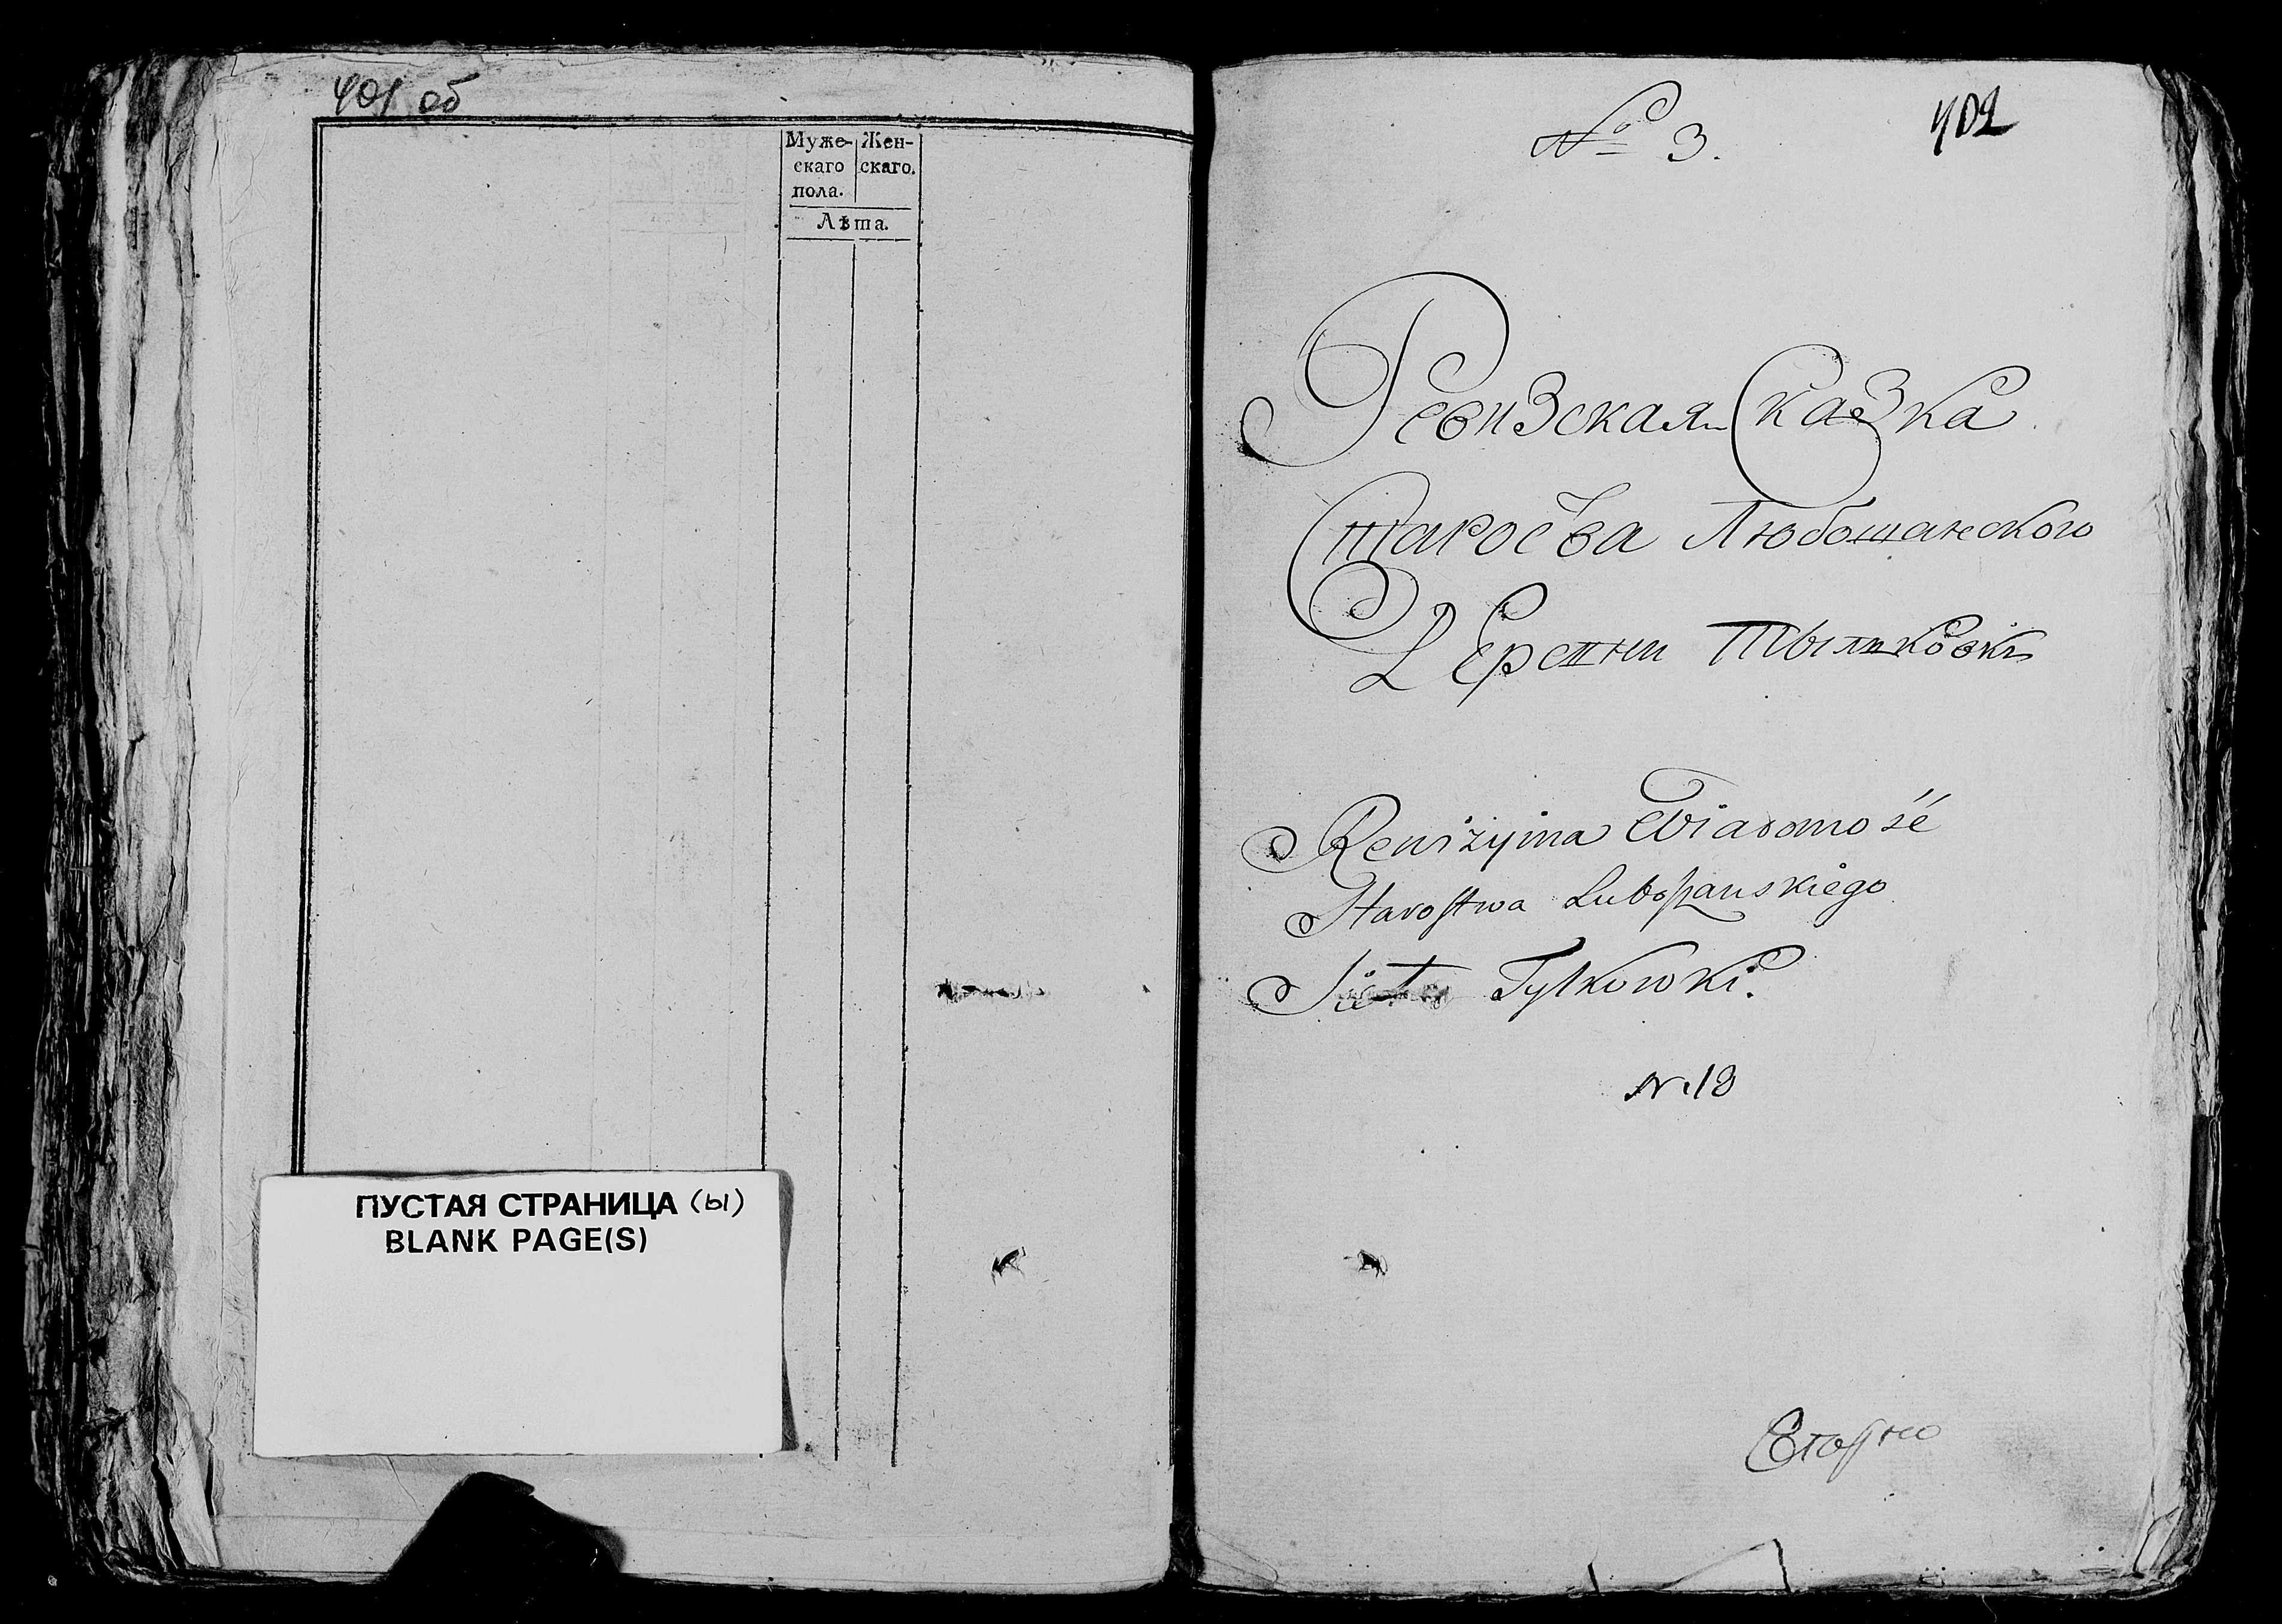 401 об
Муже- Жен-
скаго скаго.
пола.
Лѣта.
ПУСТАЯ СТРАНИЦА (ы)
BLANK PAGE(S)
№ 3.
402
Ревизская Сказка
Староства Любошанского
Деревни Тылковки
Rewizyina Wiadomość
Starostwa Luboszanskiego
Tylkowki.
N. 18